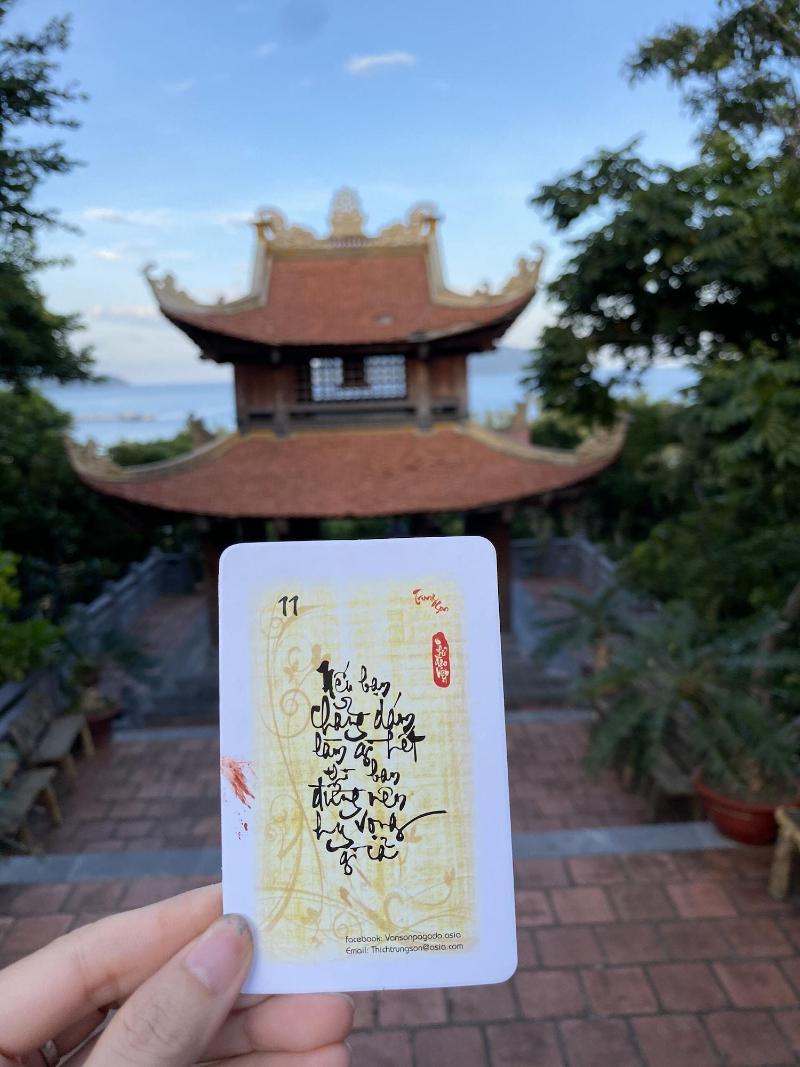 11
Trung Sơn
Nếu bạn
chẳng dám
làm gì hết
thì bạn
đừng nên
hy vọng
gì cả
facebook: Vansonpagoda.asia
Email: Thichtrungson@asia.com